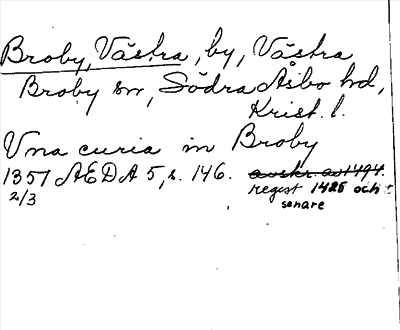 Broby, Västra, by, Västra
Broby sn, Södra Åsbo hd,
Krist. l.
Una curia in Broby
1357 ÆDA 5, s. 146. avskr. av 1494.
2/3 regest 1425 och
senare